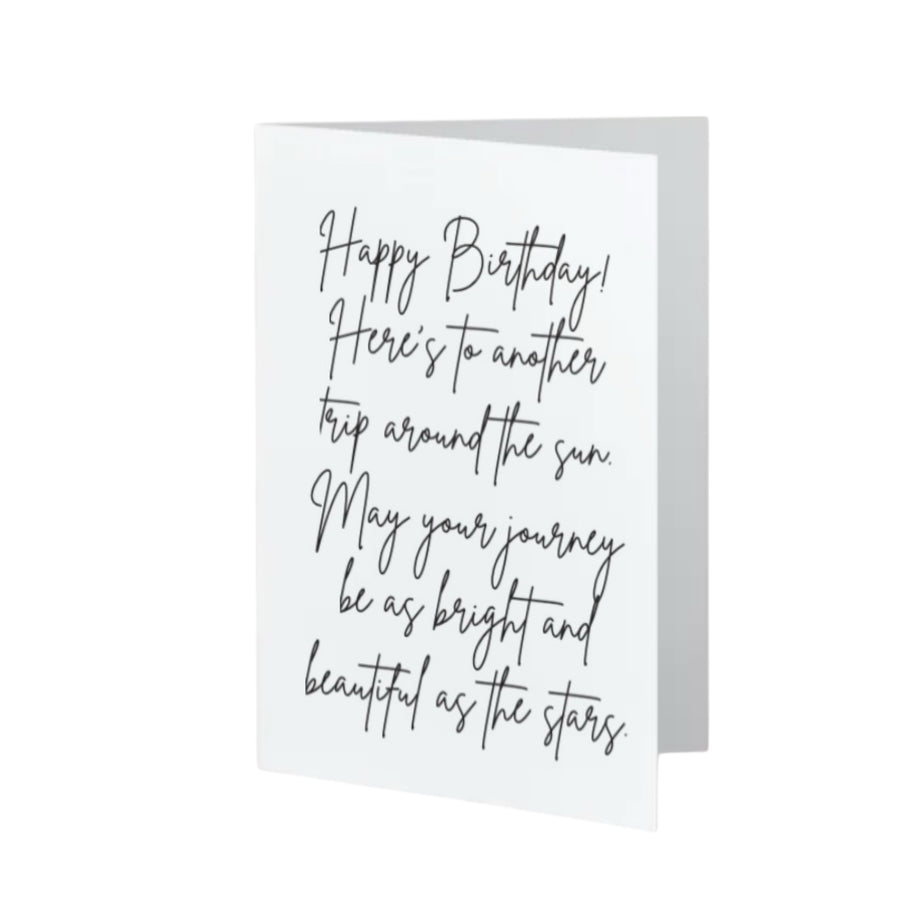 Happy Birthday!
Here's to another
trip around the sun.
May your journey
be as bright and
beautiful as the stars.